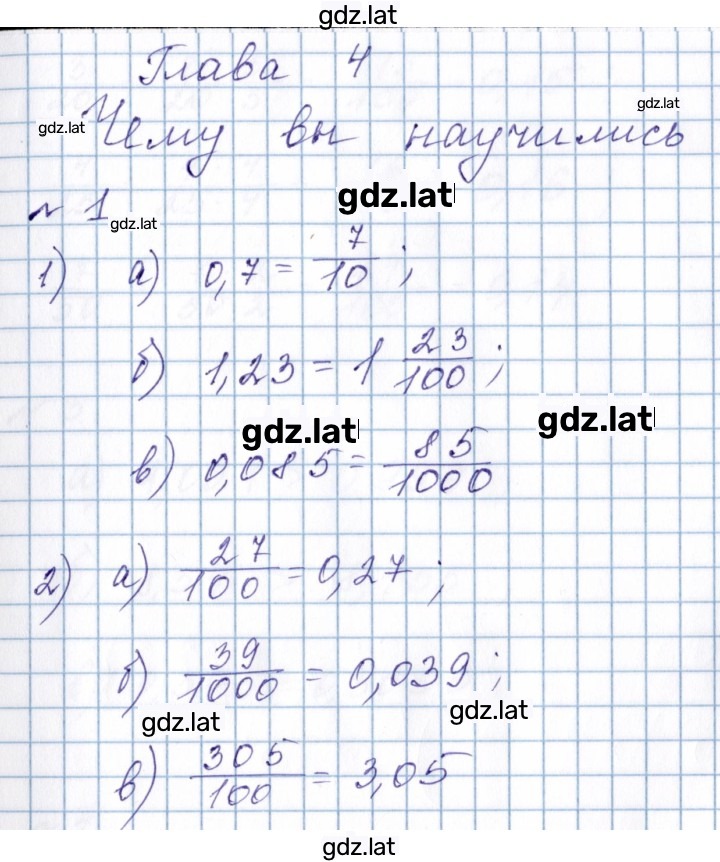 gdz.lat
Глава 4
gdz.lat
gdz.lat Чему вы научились
gdz.lat
№ 1
gdz.lat
1) а) 0,7 = 7/10 ;
б) 1,23 = 1 23/100 ;
gdz.lat
gdz.lat
в) 0,085 = 85/1000
2) а) 27/100 = 0,27 ;
б) 39/1000 = 0,039 ;
gdz.lat
gdz.lat
в) 305/100 = 3,05
gdz.lat